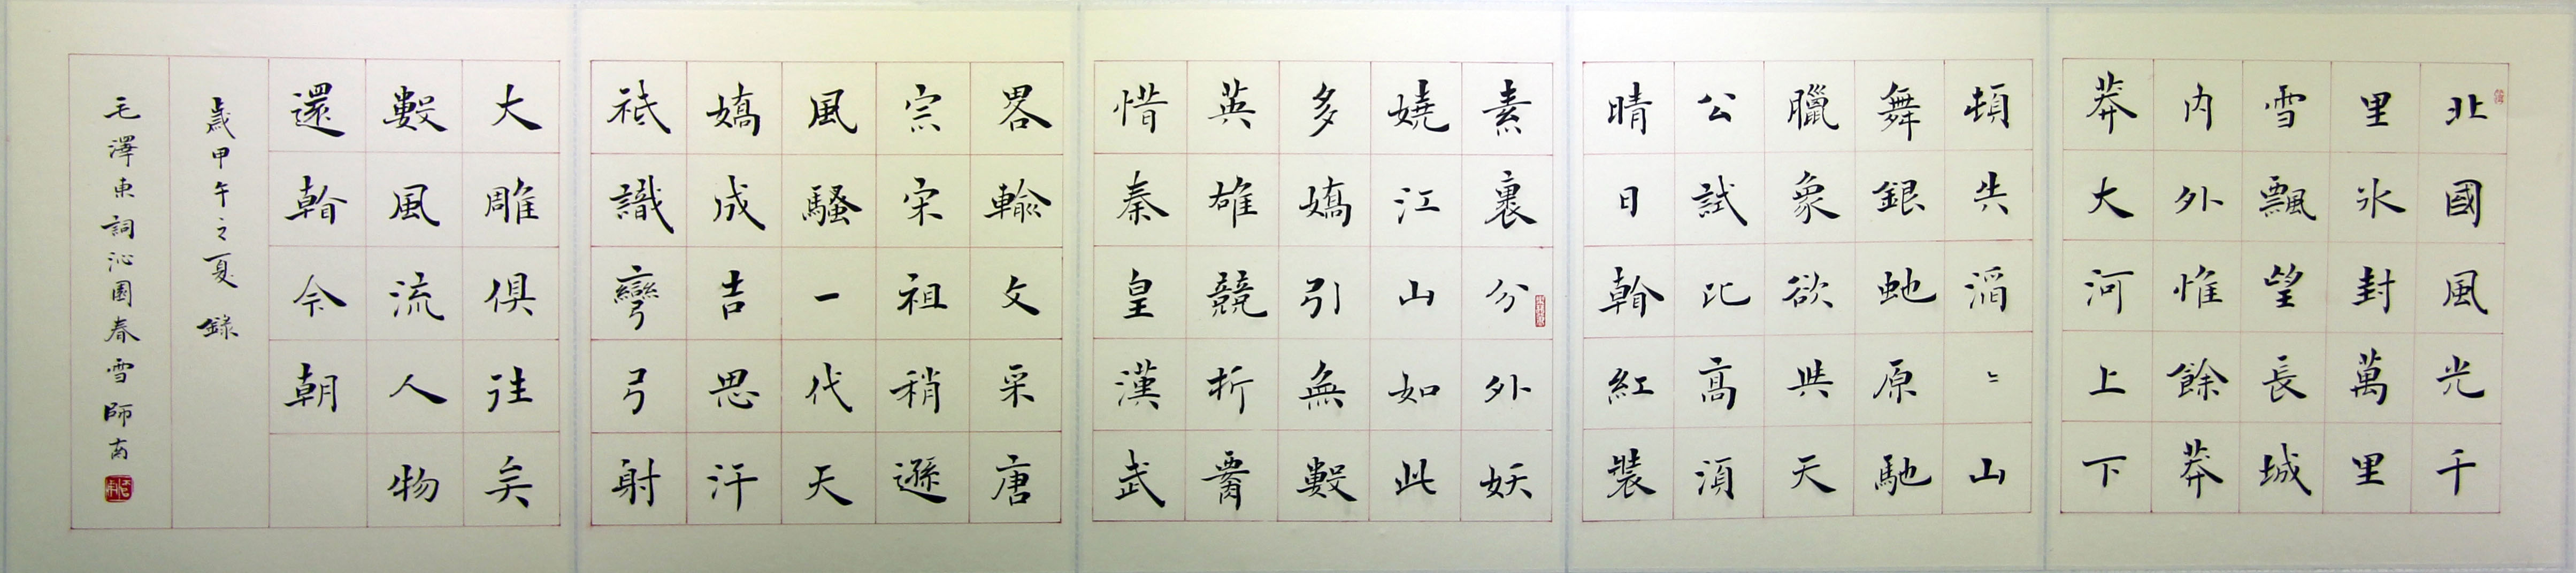 北國風光千
里冰封萬里
雪飄望長城
内外惟餘莽
莽大河上下
頓失滔〻山
舞銀蛇原馳
臘象欲與天
公試比高須
晴日看紅裝
素裹分外妖
嬈江山如此
多嬌引無數
英雄競折腰
惜秦皇漢武
畧輸文采唐
宗宋祖稍遜
風騷一代天
嬌成吉思汗
祇識彎弓射
大雕俱往矣
數風流人物
還看今朝
歲甲午之夏 錄
毛澤東詞沁園春雪 師南